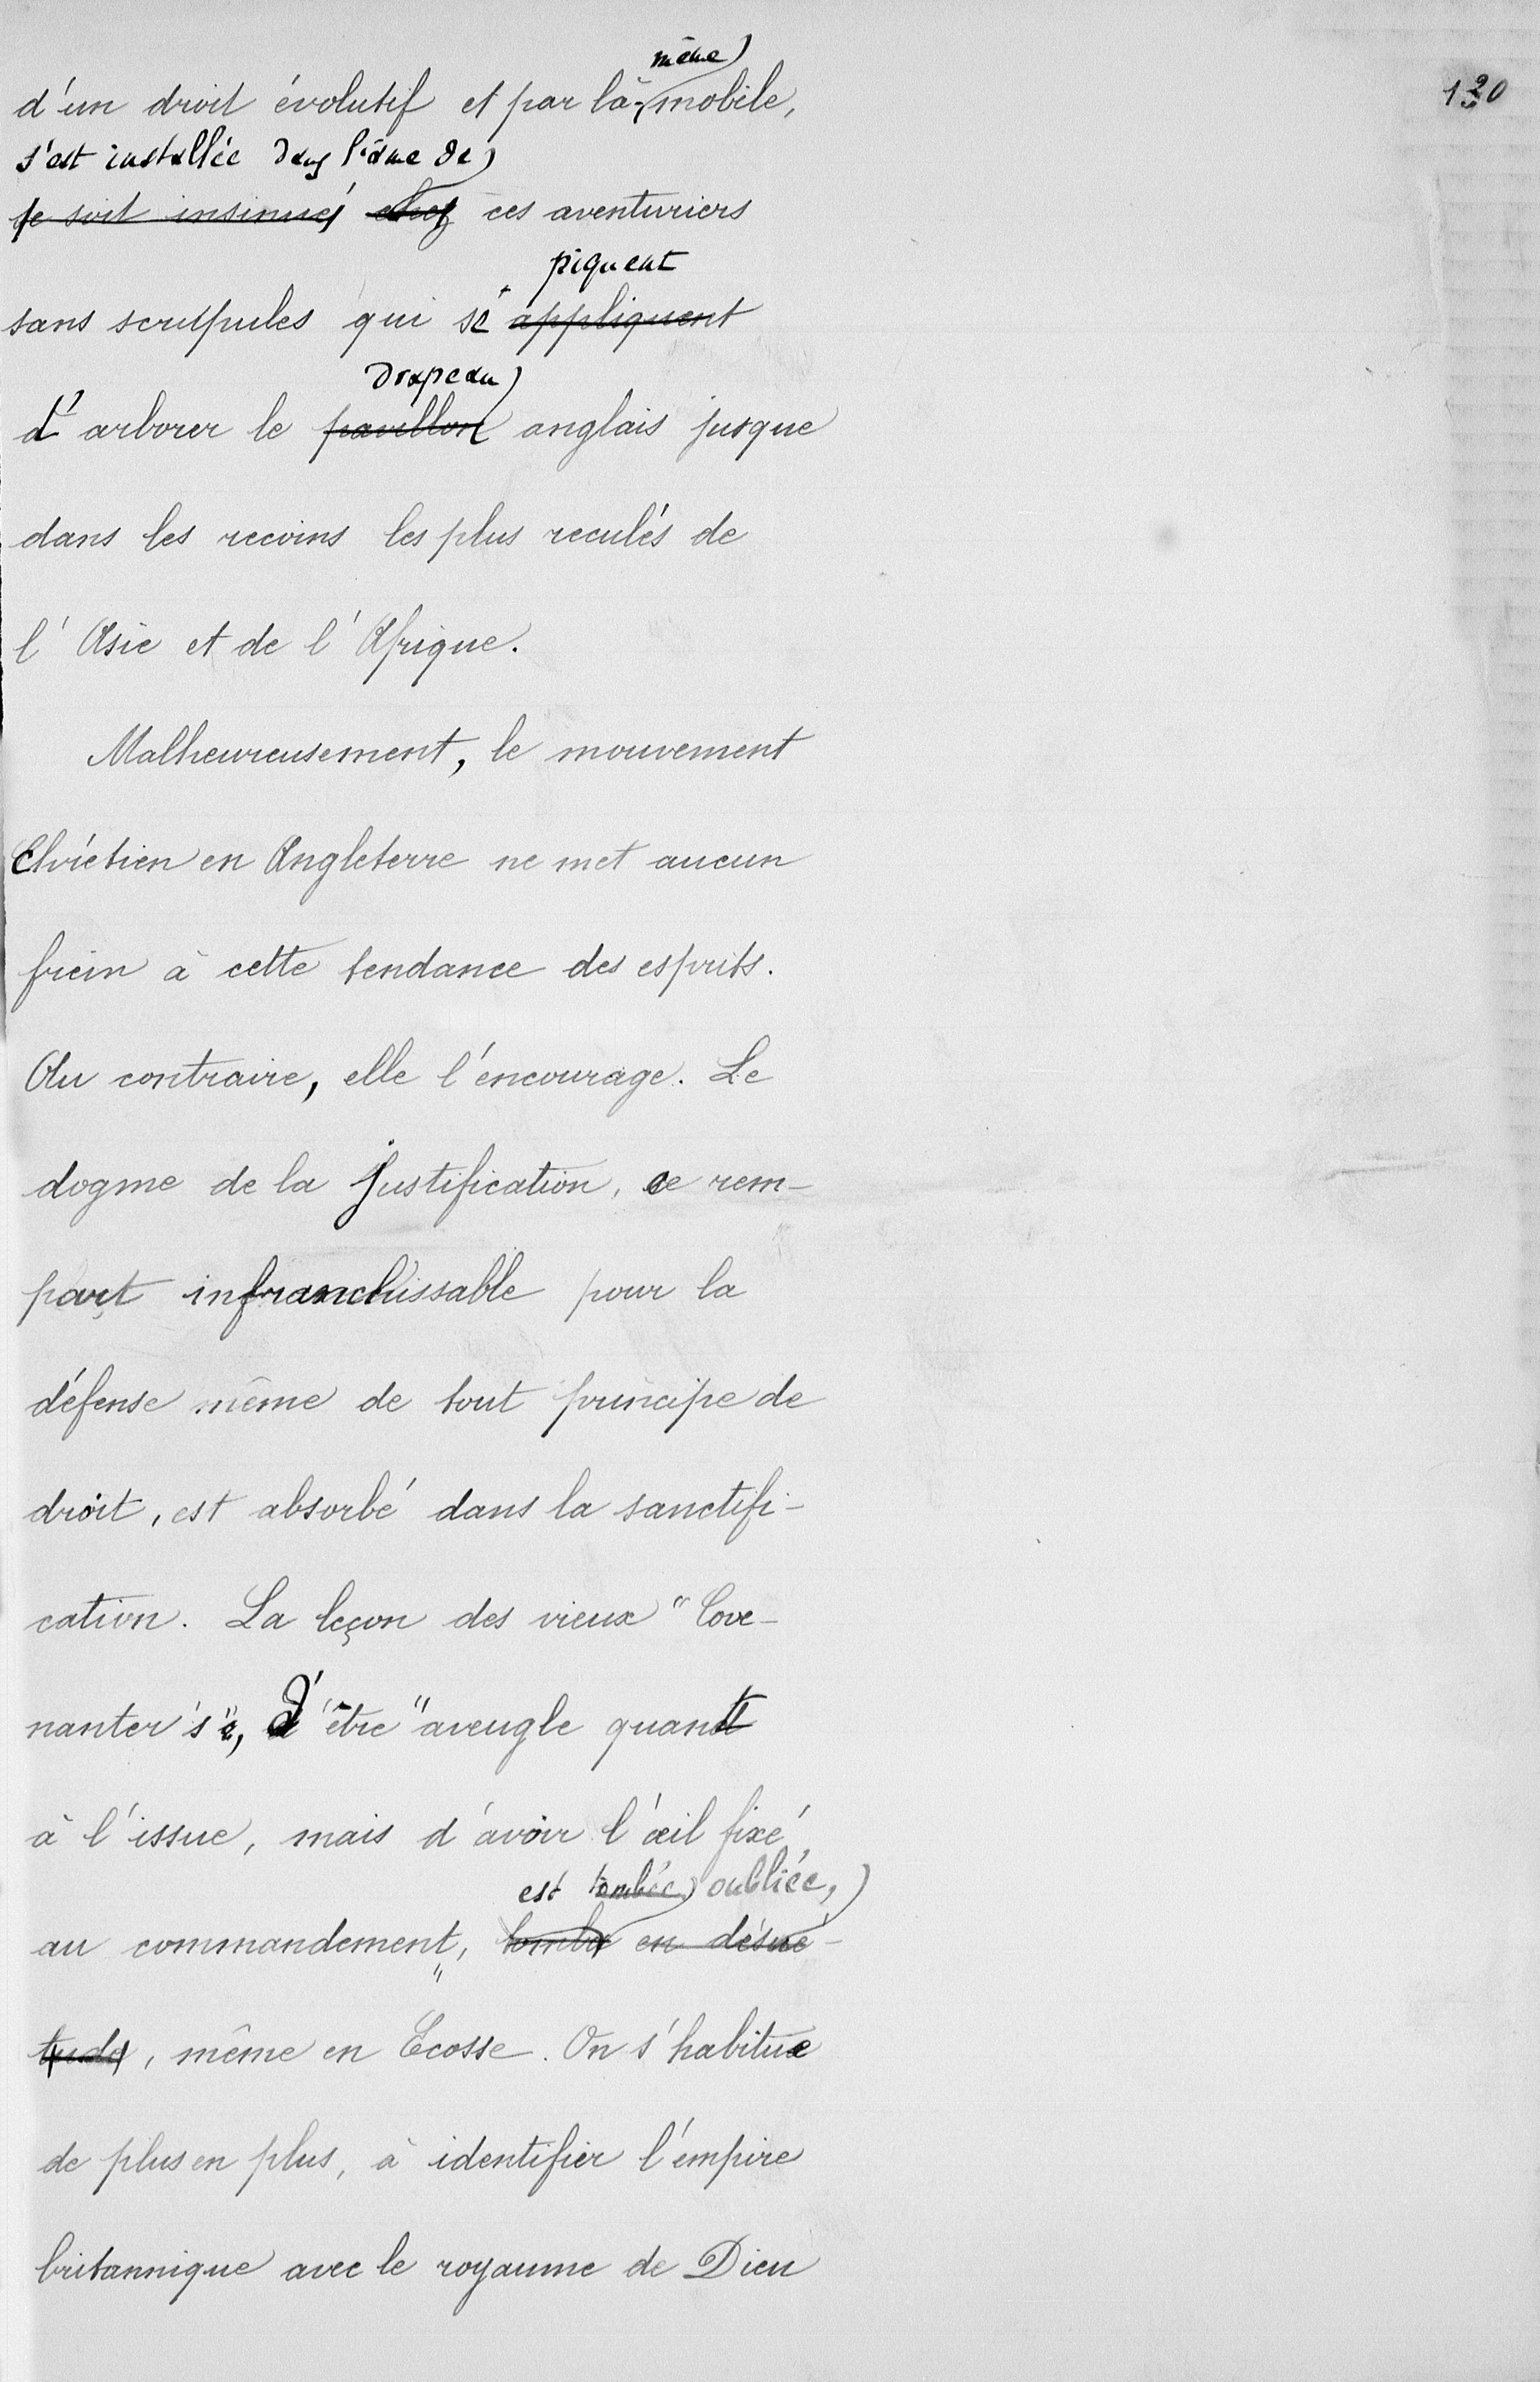 120
même
d'un droit évolutif et par là-mobile,
s'est installée dans l'âme de
se soit insinué chez ces aventuriers
piquent
sans scrupules qui se appliquent
drapeau
d'arborer le pavillon anglais jusque
dans les recoins les plus reculés de
l'Asie et de l'Afrique.
Malheureusement, le mouvement
Chrétien en Angleterre ne met aucun
frein à cette tendance des esprits.
Au contraire, elle l'encourage. Le
dogme de la justification, ce rem-
part infranchissable pour la
défense même de tout principe de
droit, est absorbé dans la sanctifi-
cation. La leçon des vieux "Cove-
nanter's", d'être "aveugle quant
à l'issue, mais d'avoir l'œil fixé
est tombée oubliée,
au commandement", tomba en désué-
tude, même en Ecosse. On s'habitue
de plus en plus, à identifier l'empire
britannique avec le royaume de Dieu